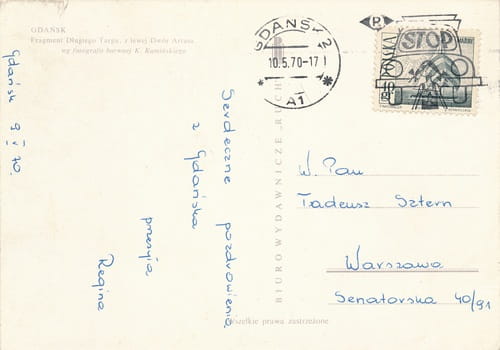 GDAŃSK
Fragment Długiego Targu, z lewej Dwór Artusa
wg fotografii barwnej K. Kamińskiego
Gdańsk 9 V 70.
Serdeczne pozdrowienia
z Gdańska
przesyła
Regina
BIURO WYDAWNICZE „RUCH”
Wszelkie prawa zastrzeżone
GDAŃSK 2
10.5.70-17
A1
P
STOP
POLSKA
W. Pan
Tadeusz Sztern
Warszawa
Senatorska 40/91